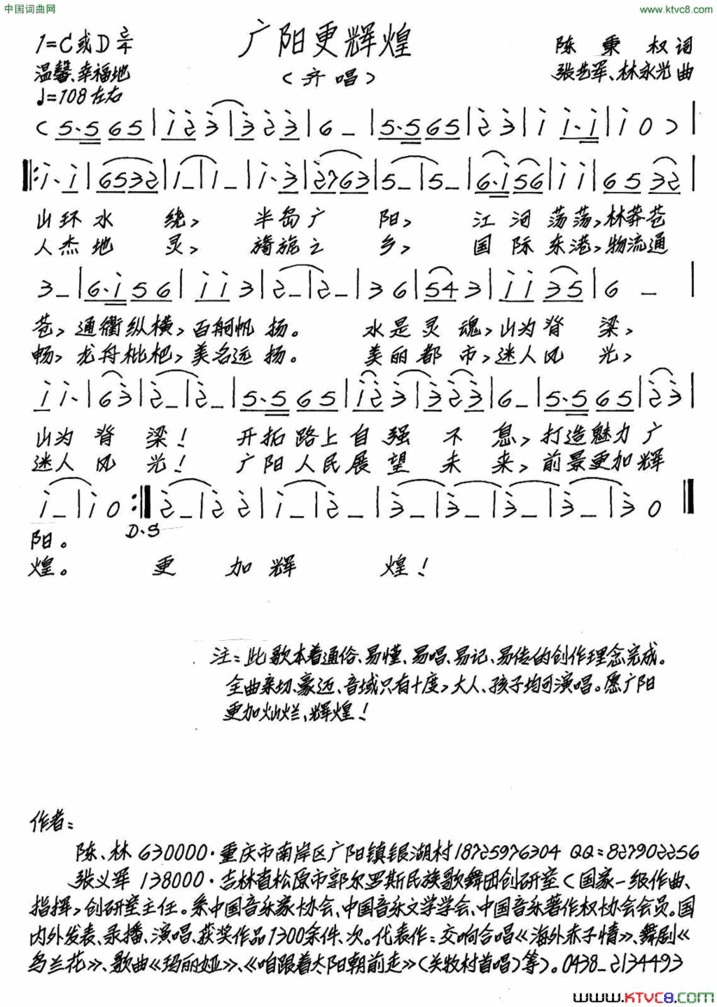 中国词曲网
www.ktvc8.com
广阳更辉煌
(齐唱)
1=C或D 2/4
温馨、幸福地
♩=108左右
陈秉权 词
张艺军、林永光 曲
山环水绕, 半岛广阳, 江河荡荡,林莽苍
人杰地灵, 旖旎之乡, 国际东港,物流通
苍,通衢纵横,百舸帆扬。 水是灵魂,山为脊梁,
畅,龙舟枇杷,美名远扬。 美丽都市,迷人风光,
山为脊梁! 开拓路上自强不息,打造魅力广
迷人风光! 广阳人民展望未来,前景更加辉
D.S
阳。
煌。 更加辉煌!
注:此歌本着通俗、易懂、易唱、易记、易传的创作理念完成。
全曲亲切、豪迈、音域只有十度,大人、孩子均可演唱。愿广阳
更加灿烂、辉煌!
作者:
陈、林 630000·重庆市南岸区广阳镇银湖村18725976304 QQ=827902256
张义军 138000·吉林省松原市郭尔罗斯民族歌舞团创研室(国家一级作曲、
指挥,创研室主任。系中国音乐家协会、中国音乐文学学会、中国音乐著作权协会会员。国
内外发表、录播、演唱、获奖作品1300余件、次。代表作:交响合唱《海外赤子情》、舞剧《
乌兰花》、歌曲《玛丽娅》、《咱跟着太阳朝前走》(关牧村首唱)等)。0438_2134493
www.KTVC8.com